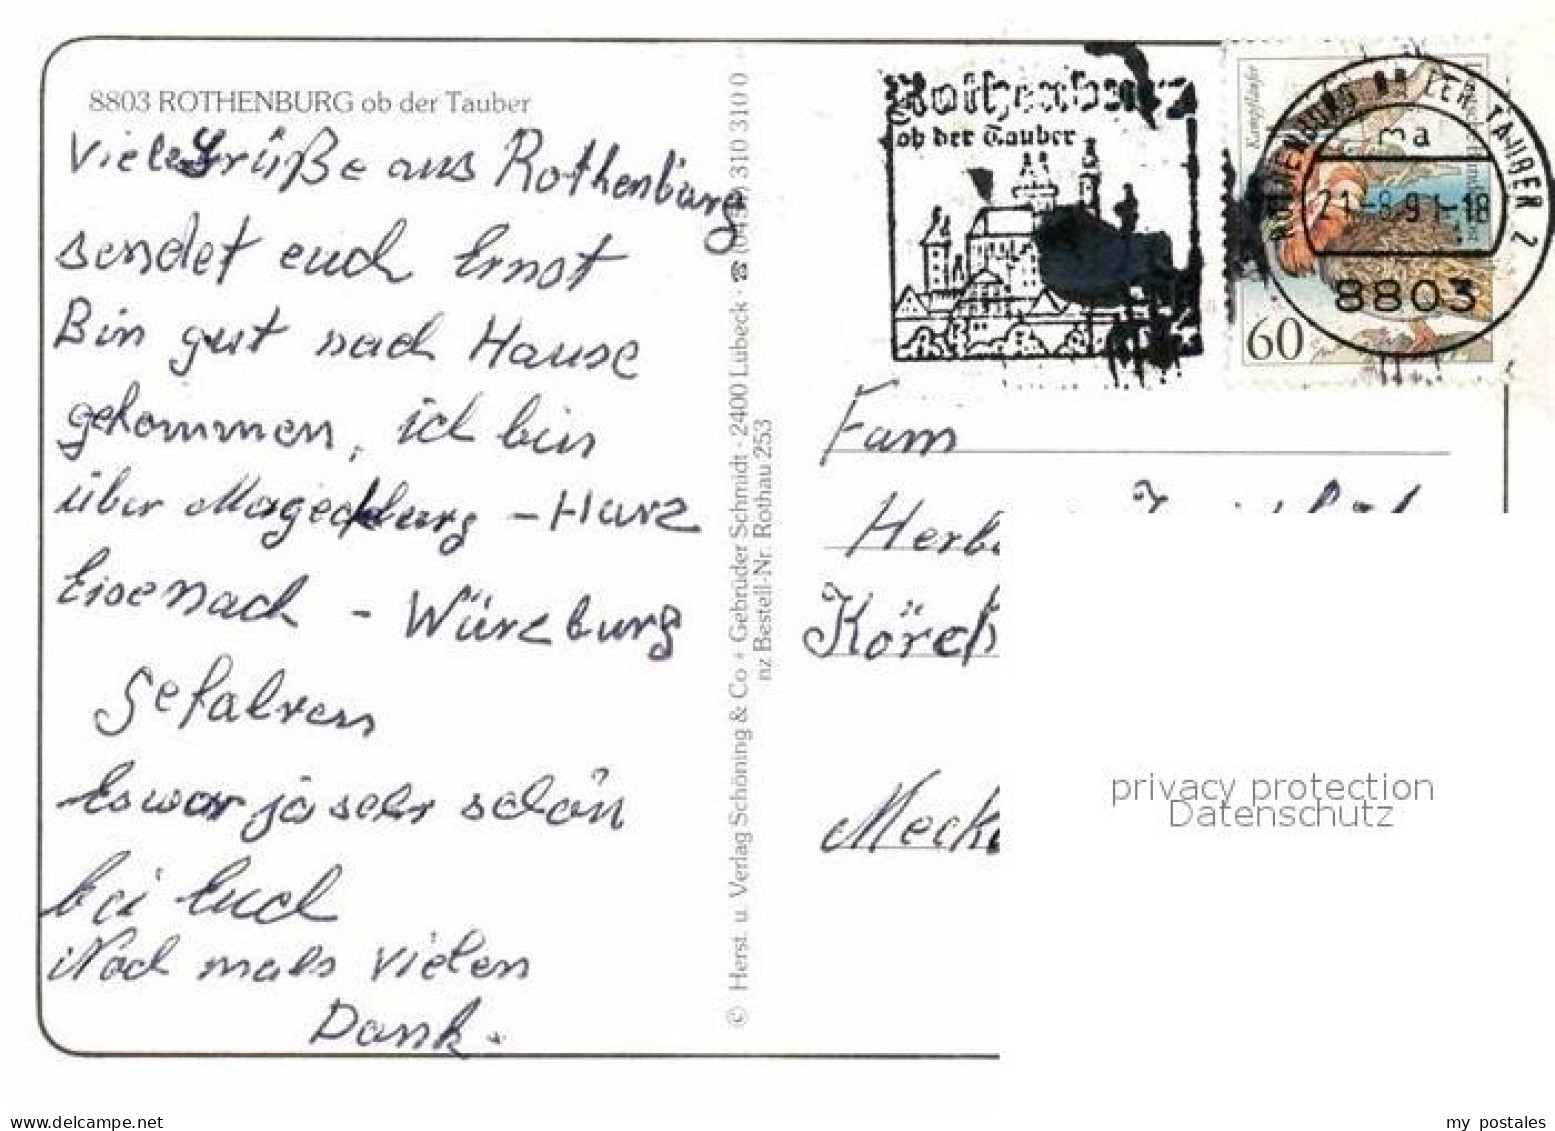 8803 ROTHENBURG ob der Tauber
Viele Grüße aus Rothenburg
sendet euch Ernst
Bin gut nach Hause
gekommen, ich bin
über Magedeburg - Harz
Eisenach - Würzburg
gefahren
Es war ja sehr schön
bei Euch
Noch mals vielen
Dank.
© Herst. u. Verlag Schöning & Co + Gebrüder Schmidt · 2400 Lübeck · ☎ 310 310 0
nz Bestell-Nr. Rothau 253
Rothenburg
ob der Tauber
Kampfläufer
60
ROTHENBURG OB DER TAUBER 2
ma
21.-8.91-18
8803
Fam
Herb
Körch
Meck
privacy protection
Datenschutz
delcampe.net
my_postales